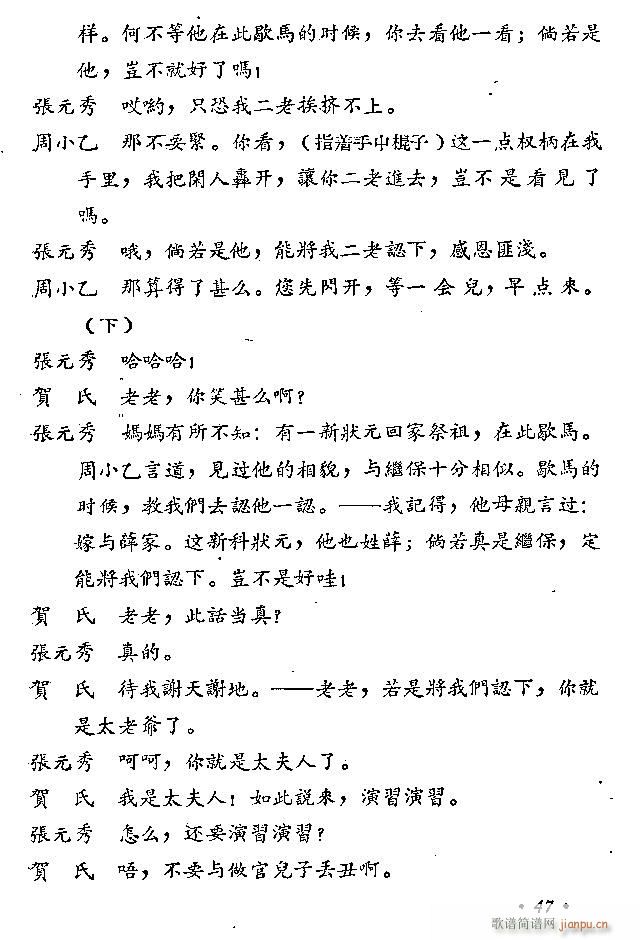 样。何不等他在此歇馬的时候，你去看他一看；倘若是
他，豈不就好了嗎！
張元秀　哎喲，只恐我二老挨挤不上。
周小乙　那不要緊。你看，（指着手中棍子）这一点权柄在我
手里，我把閑人轟开，讓你二老進去，豈不是看見了
嗎。
張元秀　哦，倘若是他，能將我二老認下，感恩匪淺。
周小乙　那算得了甚么。您先閃开，等一会兒，早点來。
（下）
張元秀　哈哈哈！
賀　氏　老老，你笑甚么啊？
張元秀　媽媽有所不知：有一新狀元回家祭祖，在此歇馬。
周小乙言道，見过他的相貌，与繼保十分相似。歇馬的
时候，教我們去認他一認。——我記得，他母親言过：
嫁与薛家。这新科狀元，他也姓薛；倘若真是繼保，定
能將我們認下。豈不是好哇！
賀　氏　老老，此話当真？
張元秀　真的。
賀　氏　待我謝天謝地。——老老，若是將我們認下，你就
是太老爷了。
張元秀　呵呵，你就是太夫人了。
賀　氏　我是太夫人！如此說來，演習演習。
張元秀　怎么，还要演習演習？
賀　氏　唔，不要与做官兒子丢丑啊。
· 47 ·
歌谱简谱网
jianpu.cn